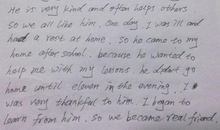 He is very kind and often helps others
so we all like him. One day I was ill and
had a rest at home. so he came to my
home after school. because he wanted to
help me with my lessons. he didn't go
home until eleven in the evening. I
was very thankful to him. I began to
learn from him. so we became real friend.